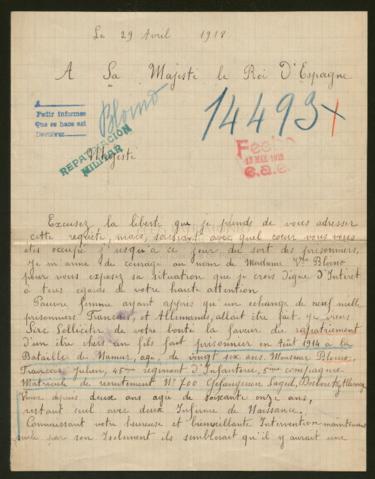 Le 29 Avril 1918
A Sa Majesté le Roi D'Espagne
14493 X
A
Pedir informes
Que se hace así
Devolver
Blomo
REPATRIACIÓN
MILITAR
Fecho
MAY. 1918
C.A.E.
Majesté
Excusez la liberté que je prends de vous adresser
cette requête, mais, sachant avec quel cœur vous vous
êtes occupé jusqu'à ce jour du sort des prisonniers,
je m'arme de courage au nom de Madame Vve Blomo
pour vous exposer sa situation que je crois digne d'Intérêt
à tous égards de votre haute attention
Pauvre femme ayant appris qu'un echange de neuf mille
prisonniers Français et Allemands, allait être fait. Je viens
Sire Solliciter de votre bonté la faveur du rapatriement
d'un être cher un fils fait prisonnier en Août 1914 à la
Bataille de Namur, âgé de vingt six ans. Monsieur Blomo
François Julien, 45ème régiment d'Infanterie, 5ème compagnie
Matricule de recrutement No 700
Veuve depuis deux ans age de soixante onze ans,
restant seul avec deux Infirme de Naissance.
Connaissant votre heureuse et bienveillante Intervention maintenant
par son Isolement ils semblerait qu'il y aurait une